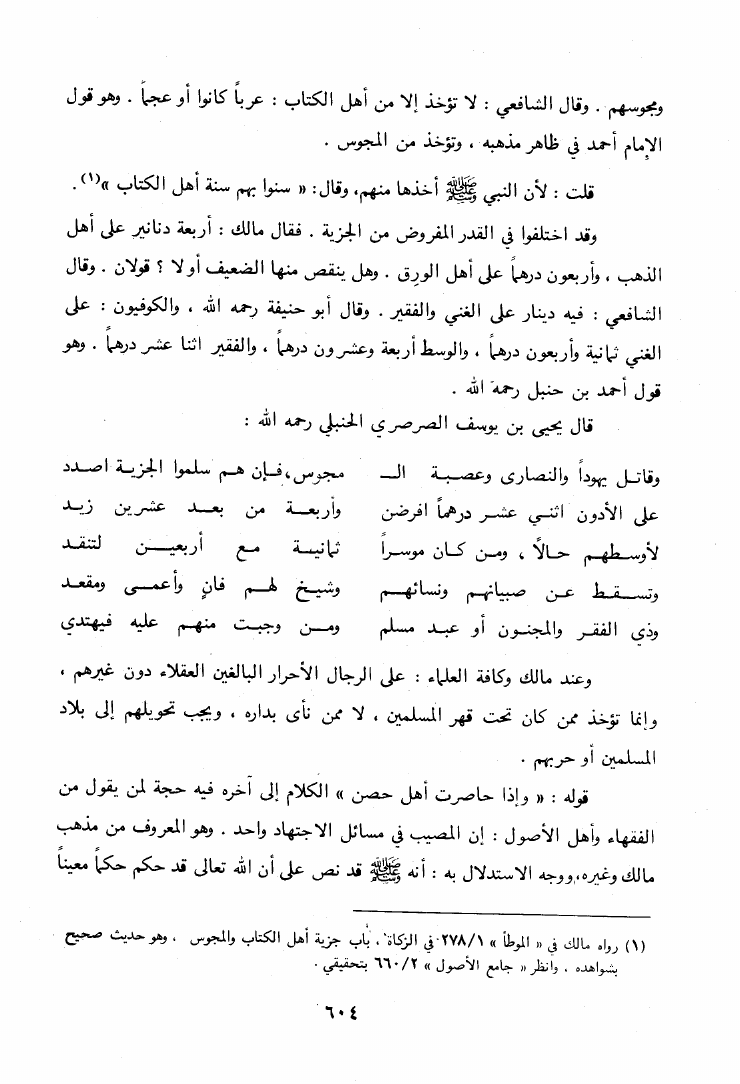 ومجوسهم . وقال الشافعي : لا تؤخذ إلا من أهل الكتاب : عرباً كانوا أو عجماً . وهو قول
الإمام أحمد في ظاهر مذهبه ، وتؤخذ من المجوس .
قلت : لأن النبي ﷺ أخذها منهم، وقال: « سنوا بهم سنة أهل الكتاب »(١).
وقد اختلفوا في القدر المفروض من الجزية . فقال مالك : أربعة دنانير على أهل
الذهب ، وأربعون درهماً على أهل الورِق . وهل ينقص منها الضعيف أو لا ؟ قولان . وقال
الشافعي : فيه دينار على الغني والفقير . وقال أبو حنيفة رحمه الله ، والكوفيون : على
الغني ثمانية وأربعون درهماً ، والوسط أربعة وعشرون درهماً ، والفقير اثنا عشر درهماً . وهو
قول أحمد بن حنبل رحمه الله .
قال يحيى بن يوسف الصرصري الحنبلي رحمه الله :
وقاتل يهوداً والنصارى وعصبة الـ مجوس،فإن هم سلموا الجزية اصدد
على الأدون اثني عشر درهماً افرضن وأربعة من بعد عشرين زيد
لأوسطهم حالاً ، ومن كان موسراً ثمانية مع أربعين لتنقد
وتسقط عن صبيانهم ونسائهم وشيخ لهم فانٍ وأعمى ومقعد
وذي الفقر والمجنون أو عبد مسلم ومن وجبت منهم عليه فيهتدي
وعند مالك وكافة العلماء : على الرجال الأحرار البالغين العقلاء دون غيرهم ،
وإنما تؤخذ ممن كان تحت قهر المسلمين ، لا ممن نأى بداره ، ويجب تحويلهم إلى بلاد
المسلمين أو حربهم .
قوله : « وإذا حاصرت أهل حصن » الكلام إلى آخره فيه حجة لمن يقول من
الفقهاء وأهل الأصول : إن المصيب في مسائل الاجتهاد واحد . وهو المعروف من مذهب
مالك وغيره،ووجه الاستدلال به : أنه ﷺ قد نص على أن الله تعالى قد حكم حكماً معيناً
(١) رواه مالك في « الموطأ » ٢٧٨/١ في الزكاة ، باب جزية أهل الكتاب والمجوس ، وهو حديث صحيح
بشواهده ، وانظر « جامع الأصول » ٦٦٠/٢ بتحقيقي .
٦٠٤